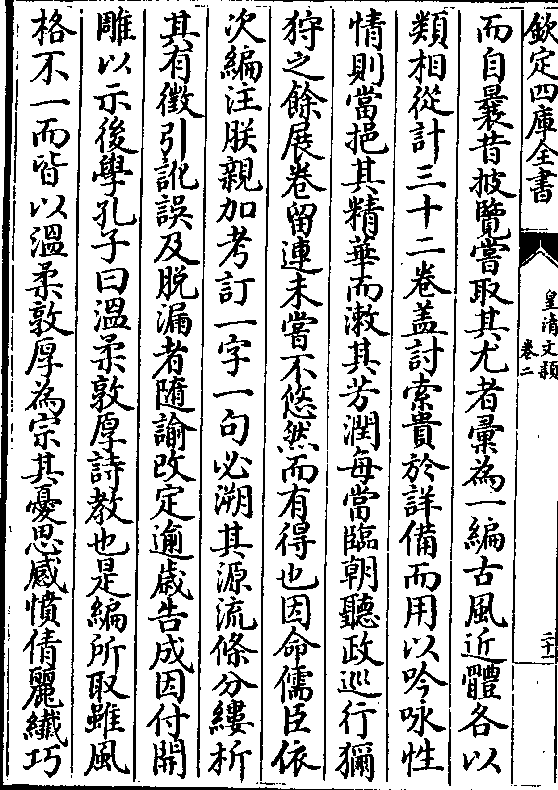 欽定四庫全書
皇清文頴
卷二
三十二
而自曩昔披覽嘗取其尤者彚為一編古風近體各以
類相從計三十二卷盖討索貴於詳備而用以吟咏性
情則當挹其精華而漱其芳潤每當臨朝聽政巡行獮
狩之餘展卷留連未嘗不悠然而有得也因命儒臣依
次編注朕親加考訂一字一句必溯其源流條分縷析
其有徵引訛誤及脱漏者隨諭改定逾嵗告成因付開
雕以示後學孔子曰溫柔敦厚詩教也是編所取雖風
格不一而皆以溫柔敦厚為宗其憂思感憤倩麗纖巧